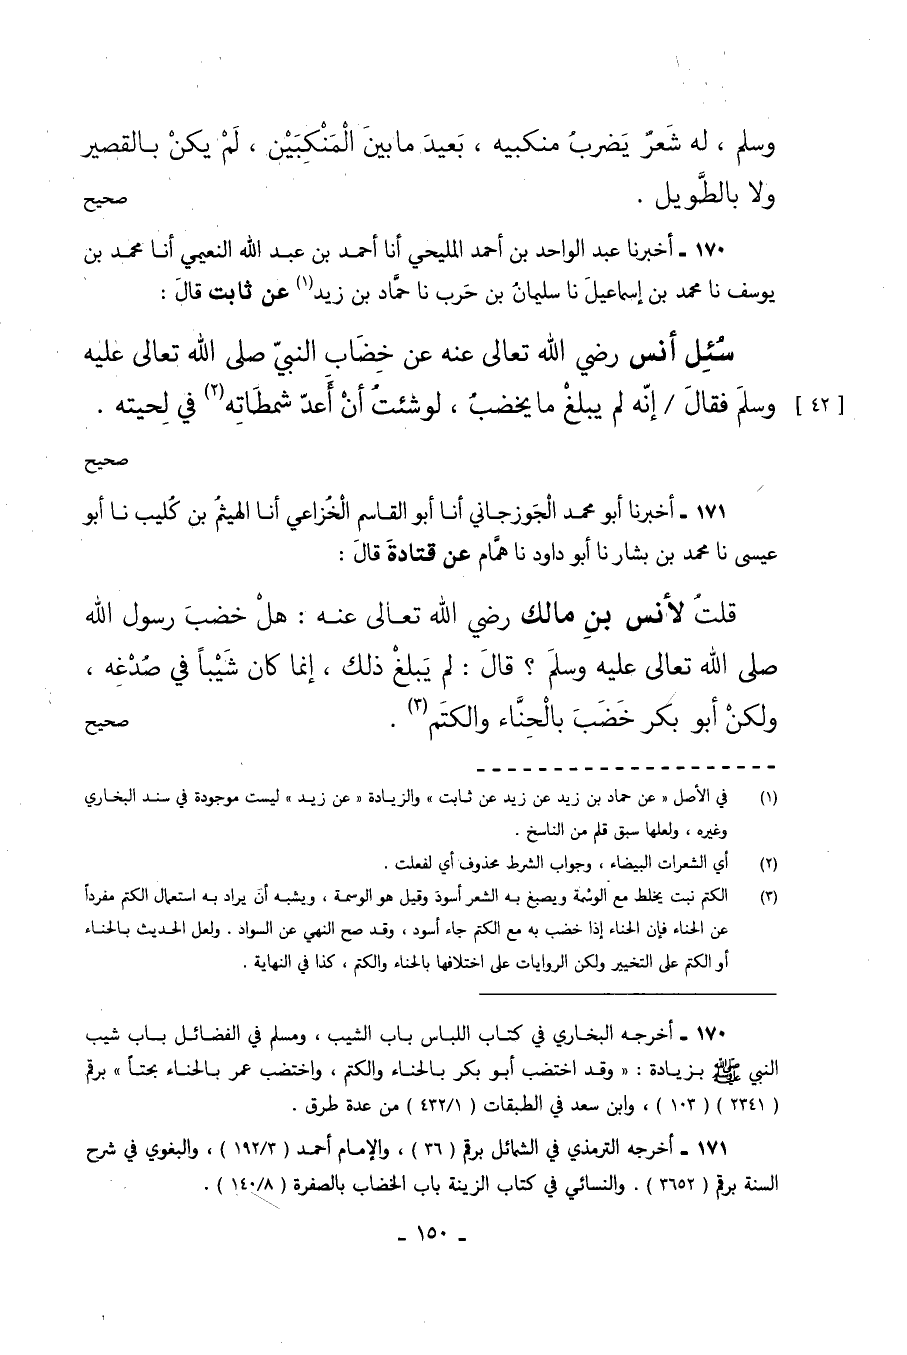 وسلم ، له شَعرٌ يَضربُ منكبيه ، بَعيدَ مابينَ الْمَنْكِبَيْن ، لَمْ يكنْ بـالقصير
ولا بالطَّويل .
صحيح
١٧٠ ـ أخبرنا عبد الواحد بن أحمد المليحي أنا أحمـد بن عبـد الله النعيمي أنـا محمـد بن
يوسف نا محمد بن إسماعيلَ نا سليمانُ بن حَرب نا حمَّاد بن زيد(١) عن ثابت قالَ :
سُئِل أنس رضي الله تعالى عنه عن خِضَابِ النبيّ صلى الله تعالى عليه
[ ٤٢ ] وسلمَ فقالَ / إنّه لم يبلغْ مايخضبُ ، لوشئتُ أنْ أَعدّ شمطَاتِه(٢) في لِحيته .
صحيح
١٧١ ـ أخبرنا أبو محمـد الْجَوزجـاني أنـا أبو القـاسم الْخُزاعي أنـا الهيثمُ بن كُليب نـا أبو
عيسى نا محمد بن بشار نا أبو داود نا همَّام عن قتادةَ قالَ :
قلتُ لأنس بنِ مالك رضي الله تعـالى عنـه : هلْ خضبَ رسول الله
صلى الله تعالى عليه وسلمَ ؟ قالَ : لم يَبلغْ ذلك ، إنما كان شَيْباً في صُدْغِه ،
ولكنْ أبو بكر خَضَبَ بالْحِنَّاء والكتَم(٣) .
صحيح
(١) في الأصل « عن حماد بن زيد عن زيد عن ثابت » والزيادة « عن زيد » ليست موجودة في سند البخاري
وغيره ، ولعلها سبق قلم من الناسخ .
(٢) أي الشعرات البيضاء ، وجواب الشرط محذوف أي لفعلت .
(٣) الكتم نبت يخلط مع الوشمة ويصبغ به الشعر أسود وقيل هو الوسمة ، ويشبه أن يراد به استعمال الكتم مفرداً
عن الحناء فإن الحناء إذا خضب به مع الكتم جاء أسود ، وقد صح النهي عن السواد . ولعل الحديث بالحناء
أو الكتم على التخيير ولكن الروايات على اختلافها بالحناء والكتم ، كذا في النهاية .
١٧٠ ـ أخرجه البخاري في كتاب اللباس باب الشيب ، ومسلم في الفضائل باب شيب
النبي ﷺ بزيادة : « وقد اختضب أبو بكر بالحناء والكتم ، واختضب عمر بالحناء بحتاً » برقم
( ٢٣٤١ ) ( ١٠٣ ) ، وابن سعد في الطبقات ( ٤٣٢/١ ) من عدة طرق .
١٧١ ـ أخرجه الترمذي في الشمائل برقم ( ٣٦ ) ، والإمام أحمد ( ١٩٢/٣ ) ، والبغوي في شرح
السنة برقم ( ٣٦٥٢ ) . والنسائي في كتاب الزينة باب الخضاب بالصفرة ( ١٤٠/٨ ) .
ـ ١٥٠ ـ